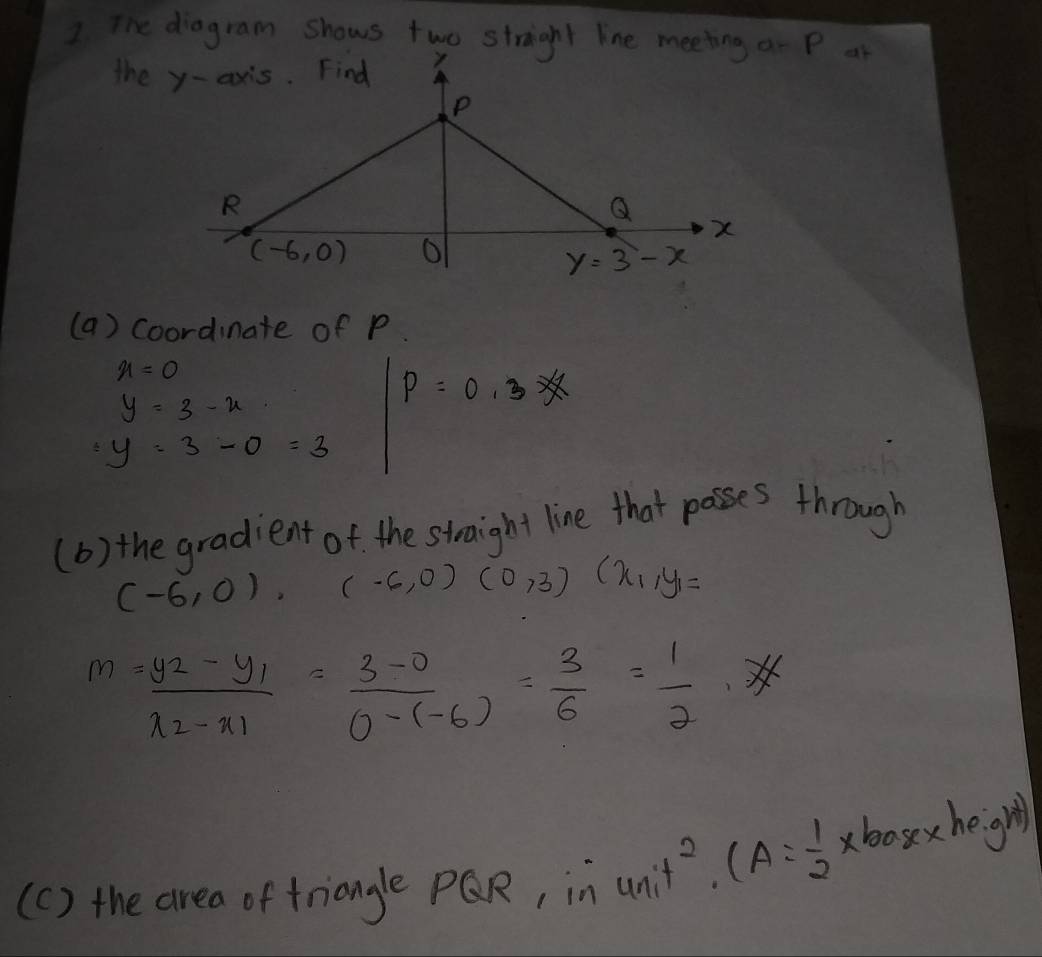 1. The diagram shows two straight line meeting at P at
the y-axis. Find
y
P
R
Q
x
(-6,0)
O
y = 3 - x
(a) Coordinate of P.
x = 0
y = 3 - x
y = 3 - 0 = 3
P = 0, 3
(b) the gradient of the straight line that passes through
(-6,0). (-6,0) (0,3) (x1, y1 =
m = y2 - y1 / x2 - x1 = 3 - 0 / 0 - (-6) = 3/6 = 1/2.
(c) the area of triangle PQR, in unit². (A = 1/2 x base x height)